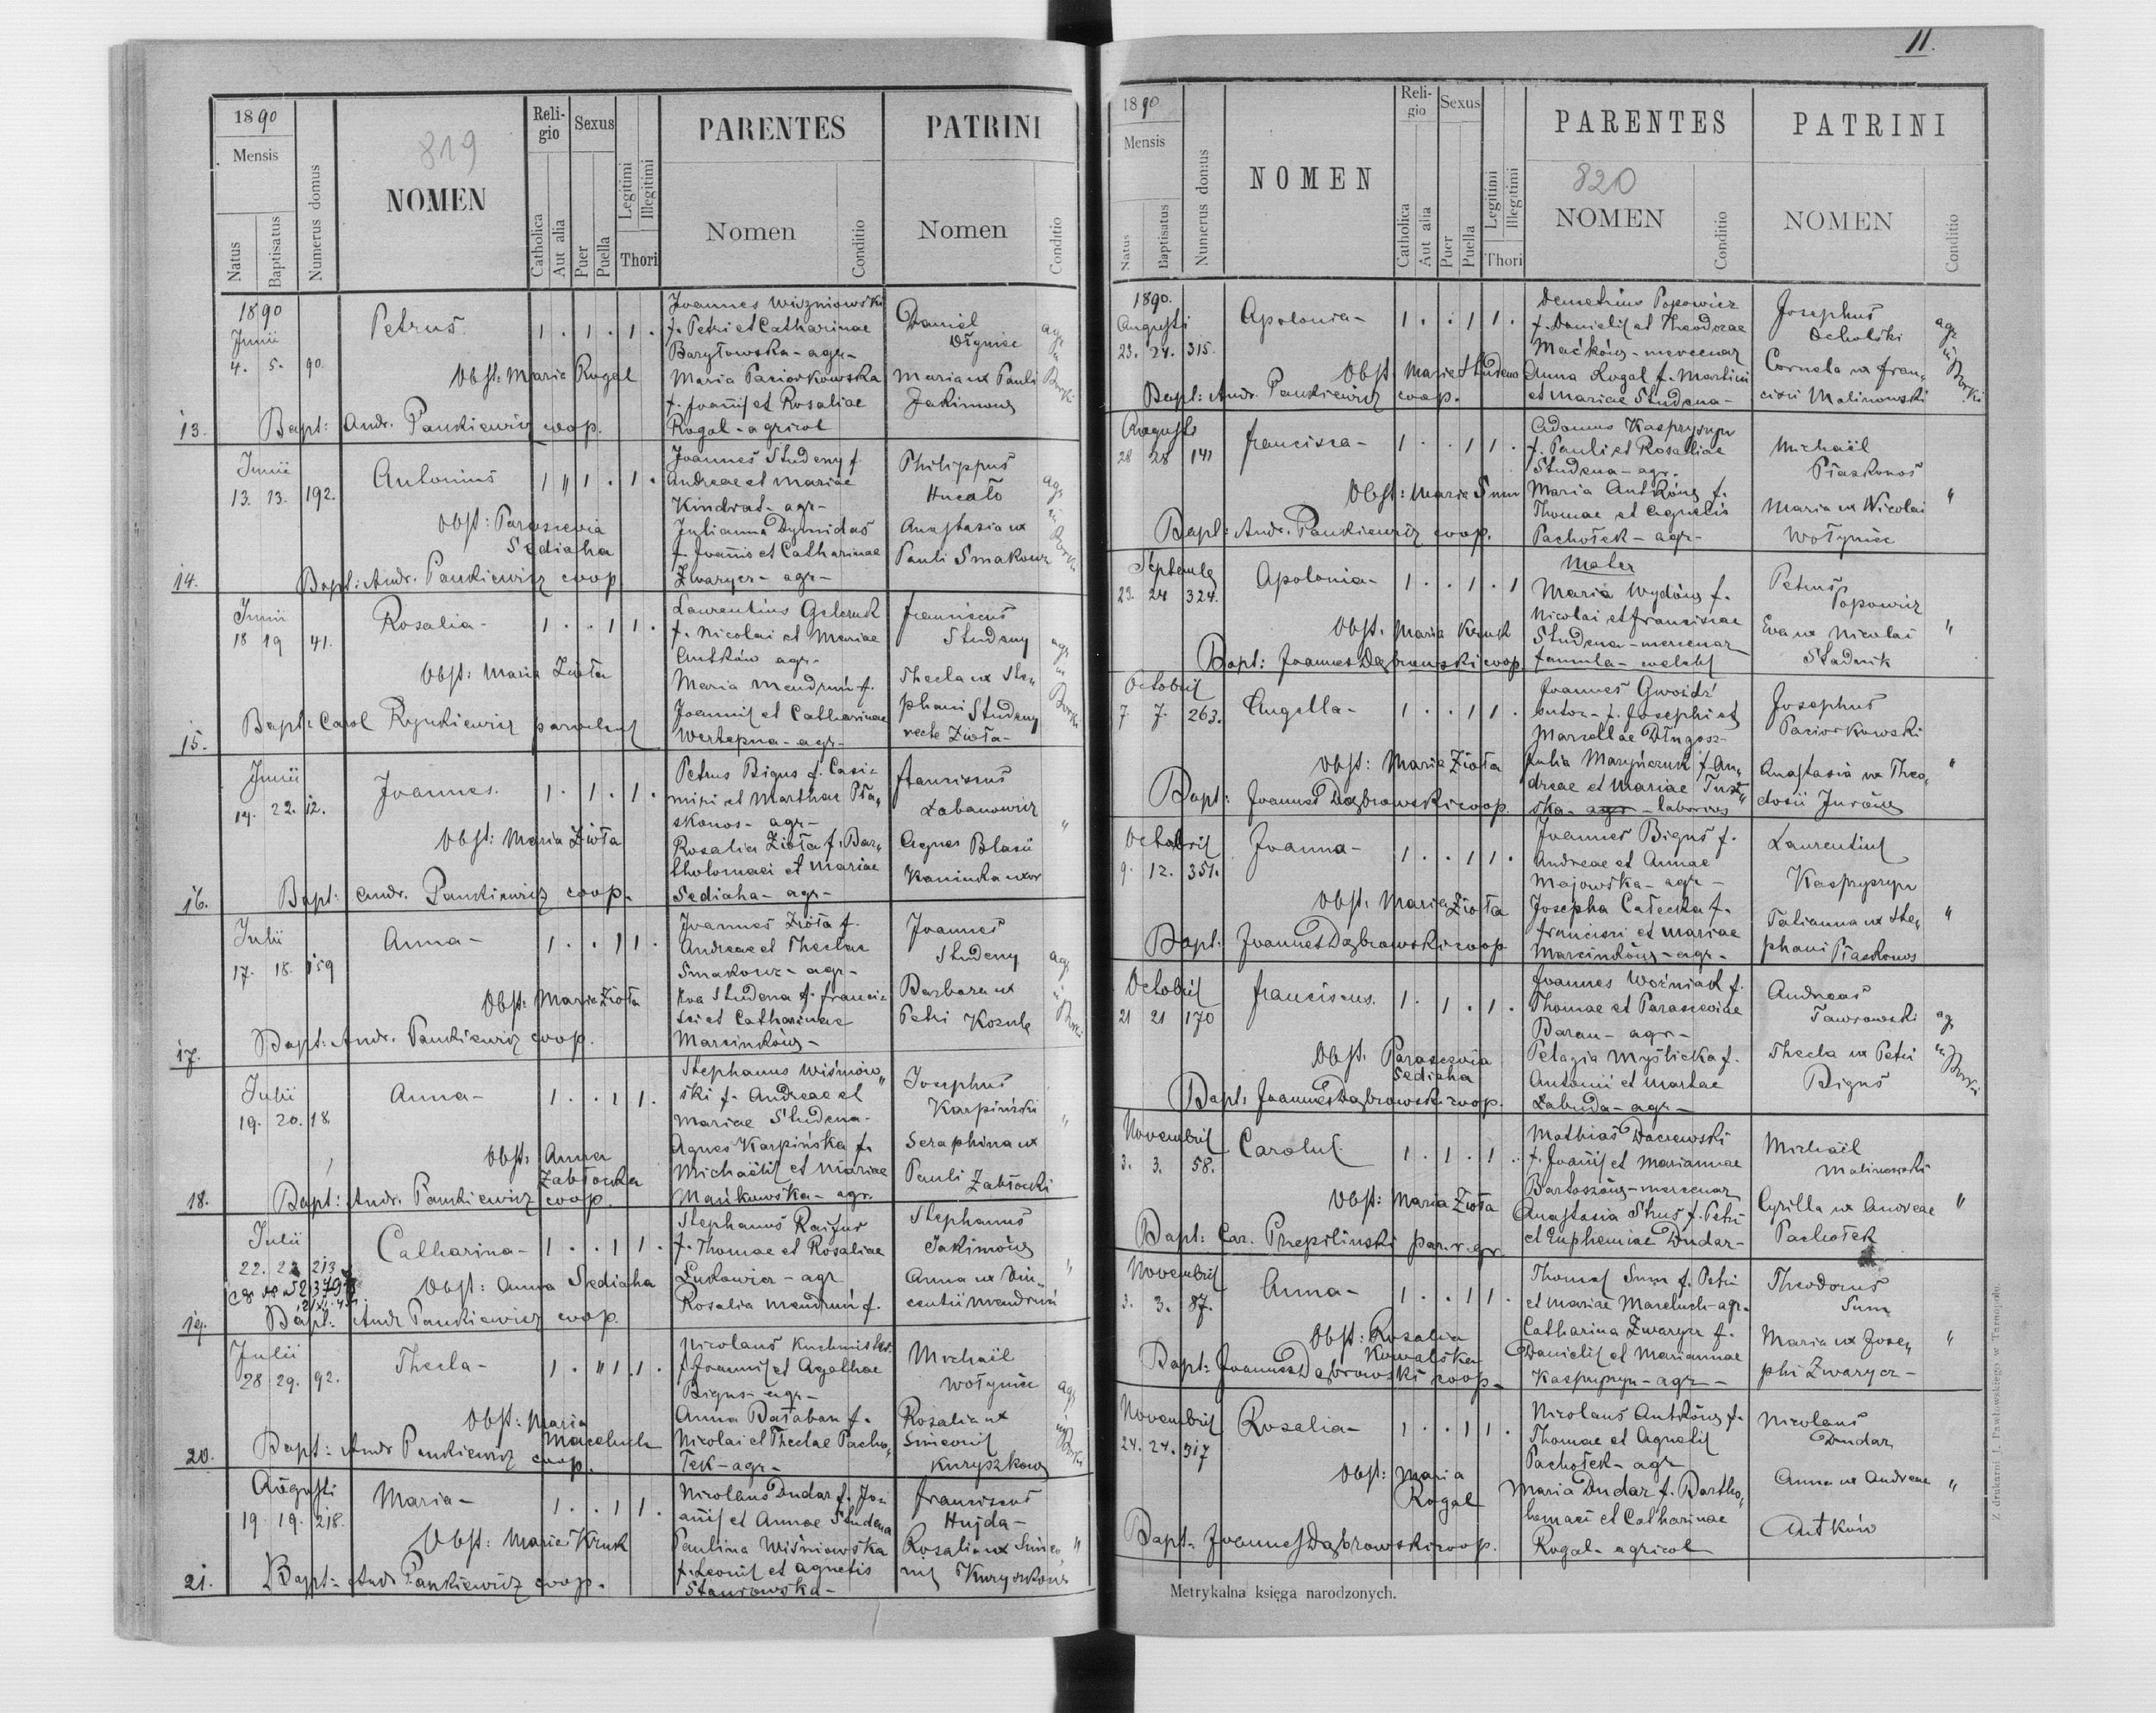 11.
1890
Mensis
Natus
Baptisatus
Numerus domus
819
NOMEN
Reli-
gio
Catholica
Aut alia
Sexus
Puer
Puella
Legitimi
Illegitimi
Thori
PARENTES
Nomen
Conditio
PATRINI
Nomen
Conditio
1890
Junii
4. 5. 90.
Petrus
1 . 1 . 1 .
Obst: Maria Rogal
13. Bapt: Andr. Pankiewicz coop.
Joannes Wiszniowski
f. Petri et Catharinae
Baryłowska - agr -
Maria Paciorkowska
f. Joannis et Rosaliae
Rogal - agricol
Daniel
Maria ux Pauli
Jakimów
agr in Borki
Junii
13. 13. 192.
Antonius
Obst: Parascevia
Sediaha
14. Bapt: Andr. Pankiewicz coop
Joannes Studeny f.
Andreae et Mariae
Kindrat - agr -
Julianna Dymidas
f. Joannis et Catharinae
Zwarycz - agr -
Philippus
Hucało
Anastasia ux
Pauli Smakouz
agr in Borki
Junii
18 19 41.
Rosalia -
1 . . 1 1 .
Obst: Maria Zioła
15. Bapt: Carol Rynkiewicz
Laurentius Geleruk
f. Nicolai et Mariae
Antków agr -
Maria Mendruń f.
Joannis et Catharinae
Wertepna - agr -
Franciscus
Studeny
Thecla ux Ste„
phani Studeny
recte Zioła -
agr in Borki
Junii
14. 22. 12.
Joannes.
1 . 1 . 1 .
Obst: Maria Zioła
16. Bapt: Andr. Pankiewicz coop.
Petrus Bigus f. Casi„
miri et Marthae Pła„
skonos - agr -
Rosalia Zioła f. Bar„
tholomaei et Mariae
Sediaha - agr -
Franciscus
Łabanowicz
Agnes Blasii
Kaminka uxor
"
Julii
17. 18. 159
Anna -
1 . . 1 1 .
Obst: Maria Zioła
17. Bapt: Andr. Pankiewicz coop.
Joannes Zioła f.
Andreae et Theclae
Smakouz - agr -
Eva Studena f. Francis
sci et Catharinae
Marcinków -
Joannes
Studeny
Barbara ux
Petri Kozub
agr in Borki
Julii
19. 20. 18.
Anna -
1 . . 1 1 .
Obst: Anna
Zabłocka
18. Bapt: Andr. Pankiewicz coop.
Stephanus Wiśniow„
ski f. Andreae et
Mariae Studena -
Agnes Karpińska f.
Michaëlis et Mariae
Mańkowska - agr.
Josephus
Karpiński
Seraphina ux
Pauli Zabłocki
"
Julii
22. 22 213
Catharina -
1 . . 1 1 .
Obst: Anna Sediaha
19. Bapt: Andr Pankiewicz coop.
Stephanus Rajfur
f. Thomae et Rosaliae
Łukowicz - agr
Rosalia Mendruń f.
Stephanus
Jakimów
Anna ux Vin„
centii Mendruń
"
Julii
28 29. 92.
Thecla -
Obst: Maria
Macelüch
20. Bapt: Andr Pankiewicz coop.
Nicolaus Kuchmister
f. Joannis et Agathae
Bigus - agr -
Anna Bałaban f.
Nicolai et Theclae Pacho„
łek - agr -
Michaël
Wołyniec
Rosalia ux
Simeonis
Kuryszkow
agr in Borki
Augusti
19. 19. 218.
Maria -
1 . . 1 1 .
Obst: Maria Kruk
21. Bapt: Andr Pankiewicz coop.
Nicolaus Dudar f. Jo„
annis et Annae Studena
Paulina Wiśniowska
f. Leonis et Agnetis
Staurowska -
Franciscus
Hujda -
Rosalia ux Simeo„
nis Kuryszkow
"
1890
Mensis
Natus
Baptisatus
Numerus domus
NOMEN
Reli-
gio
Catholica
Aut alia
Sexus
Puer
Puella
Legitimi
Illegitimi
Thori
PARENTES
820
NOMEN
Conditio
PATRINI
NOMEN
Conditio
1890.
Augusti
23. 24. 315.
Apolonia -
1 . . 1 1 .
Obst: Maria Studena
Bapt: Andr. Pankiewicz coop.
Demetrius Popowicz
f. Danielis et Theodorae
Maćków - mercenar
Anna Rogal f. Martini
et Mariae Studena -
Josephus
Ocholski
Cornela ux Fran„
cisci Malinowski
agr in Borki
Augusti
28 28 141
Francisca -
1 . . 1 1 .
Obst: Maria Sum
Bapt: Andr. Pankiewicz coop.
Adamus Kaspryszyn
f. Pauli et Rosaliae
Studena - agr.
Maria Antków f.
Thomae et Agnetis
Pachołek - agr -
Michaël
Płaskonos
Maria ux Nicolai
Wołyniec
"
Septemb
23. 24 324.
Apolonia -
1 . . 1 . 1
Obst. Maria Kruk
Bapt: Joannes Dąbrowski coop.
Mater
Maria Wydów f.
Nicolai et Franciscae
Studena - mercenar
famula - coelebs
Petrus
Popowicz
Eva ux Nicolai
Stadnik
"
Octobris
7 7. 263.
Angella -
1 . . 1 1 .
Obst: Maria Zioła
Bapt: Joannes Dąbrowski coop.
Joannes Gwoźdź
sutor - f. Josephi et
Marcellae Długosz -
Julia Maryńczuk f. An„
dreae et Mariae Tust„
ska - agr - laborios
Josephus
Paciorkowski
Anastasia ux Theo„
dosii Jurów
"
Octobris
9. 12. 351.
Joanna -
1 . . 1 1 .
Obst. Maria Zioła
Bapt: Joannes Dąbrowski coop
Joannes Bigus f.
Andreae et Annae
Majowska - agr -
Josepha Całecka f.
Francisci et Mariae
Marcinków - agr -
Laurentius
Kaspryszyn
Tatianna ux Ste„
phani Płaskonos
"
Octobris
21 21 170
Franciscus.
1 . 1 . 1 .
Obst. Parascevia
Sediaha
Bapt: Joannes Dąbrowski coop.
Joannes Woźniak f.
Thomae et Parasceviae
Baran - agr -
Pelagia Myślicka f.
Antonii et Martae
Łabuda - agr -
Andreas
Jaworowski
Thecla ux Petri
Bigus
agr in Borki
Novembris
3. 3. 58.
Carolus.
1 . 1 . 1 .
Obst: Maria Zioła
Bapt: Car. Przepiliński par. r. gr.
Mathias Daczewski
f. Joannis et Mariannae
Bartoszów - mercenar
Anastasia Skus f. Petri
et Euphemiae Dudar -
Michaël
Malinowski
Cyrilla ux Andreae
Pachołek
"
Novembris
3. 3. 87.
Anna -
1 . . 1 1 .
Obst: Rosalia
Kowalska
Bapt: Joannes Dąbrowski coop -
Thomas Sum f. Petri
et Mariae Maceluch - agr -
Catharina Zwarycz f.
Danielis et Mariannae
Kaspryszyn - agr -
Theodorus
Sum
Maria ux Jose„
phi Zwarycz -
"
Novembris
24. 24. 317
Rosalia -
1 . . 1 1 .
Obst: Maria
Rogal
Bapt: Joannes Dąbrowski coop.
Nicolaus Antków f.
Thomae et Agnetis
Pachołek - agr
Maria Dudar f. Bartho„
lomaei et Catharinae
Rogal - agricol
Nicolaus
Dudar
Anna ux Andreae
Antków
"
Metrykalna księga narodzonych.
Z drukarni J. Pawłowskiego w Tarnopolu.